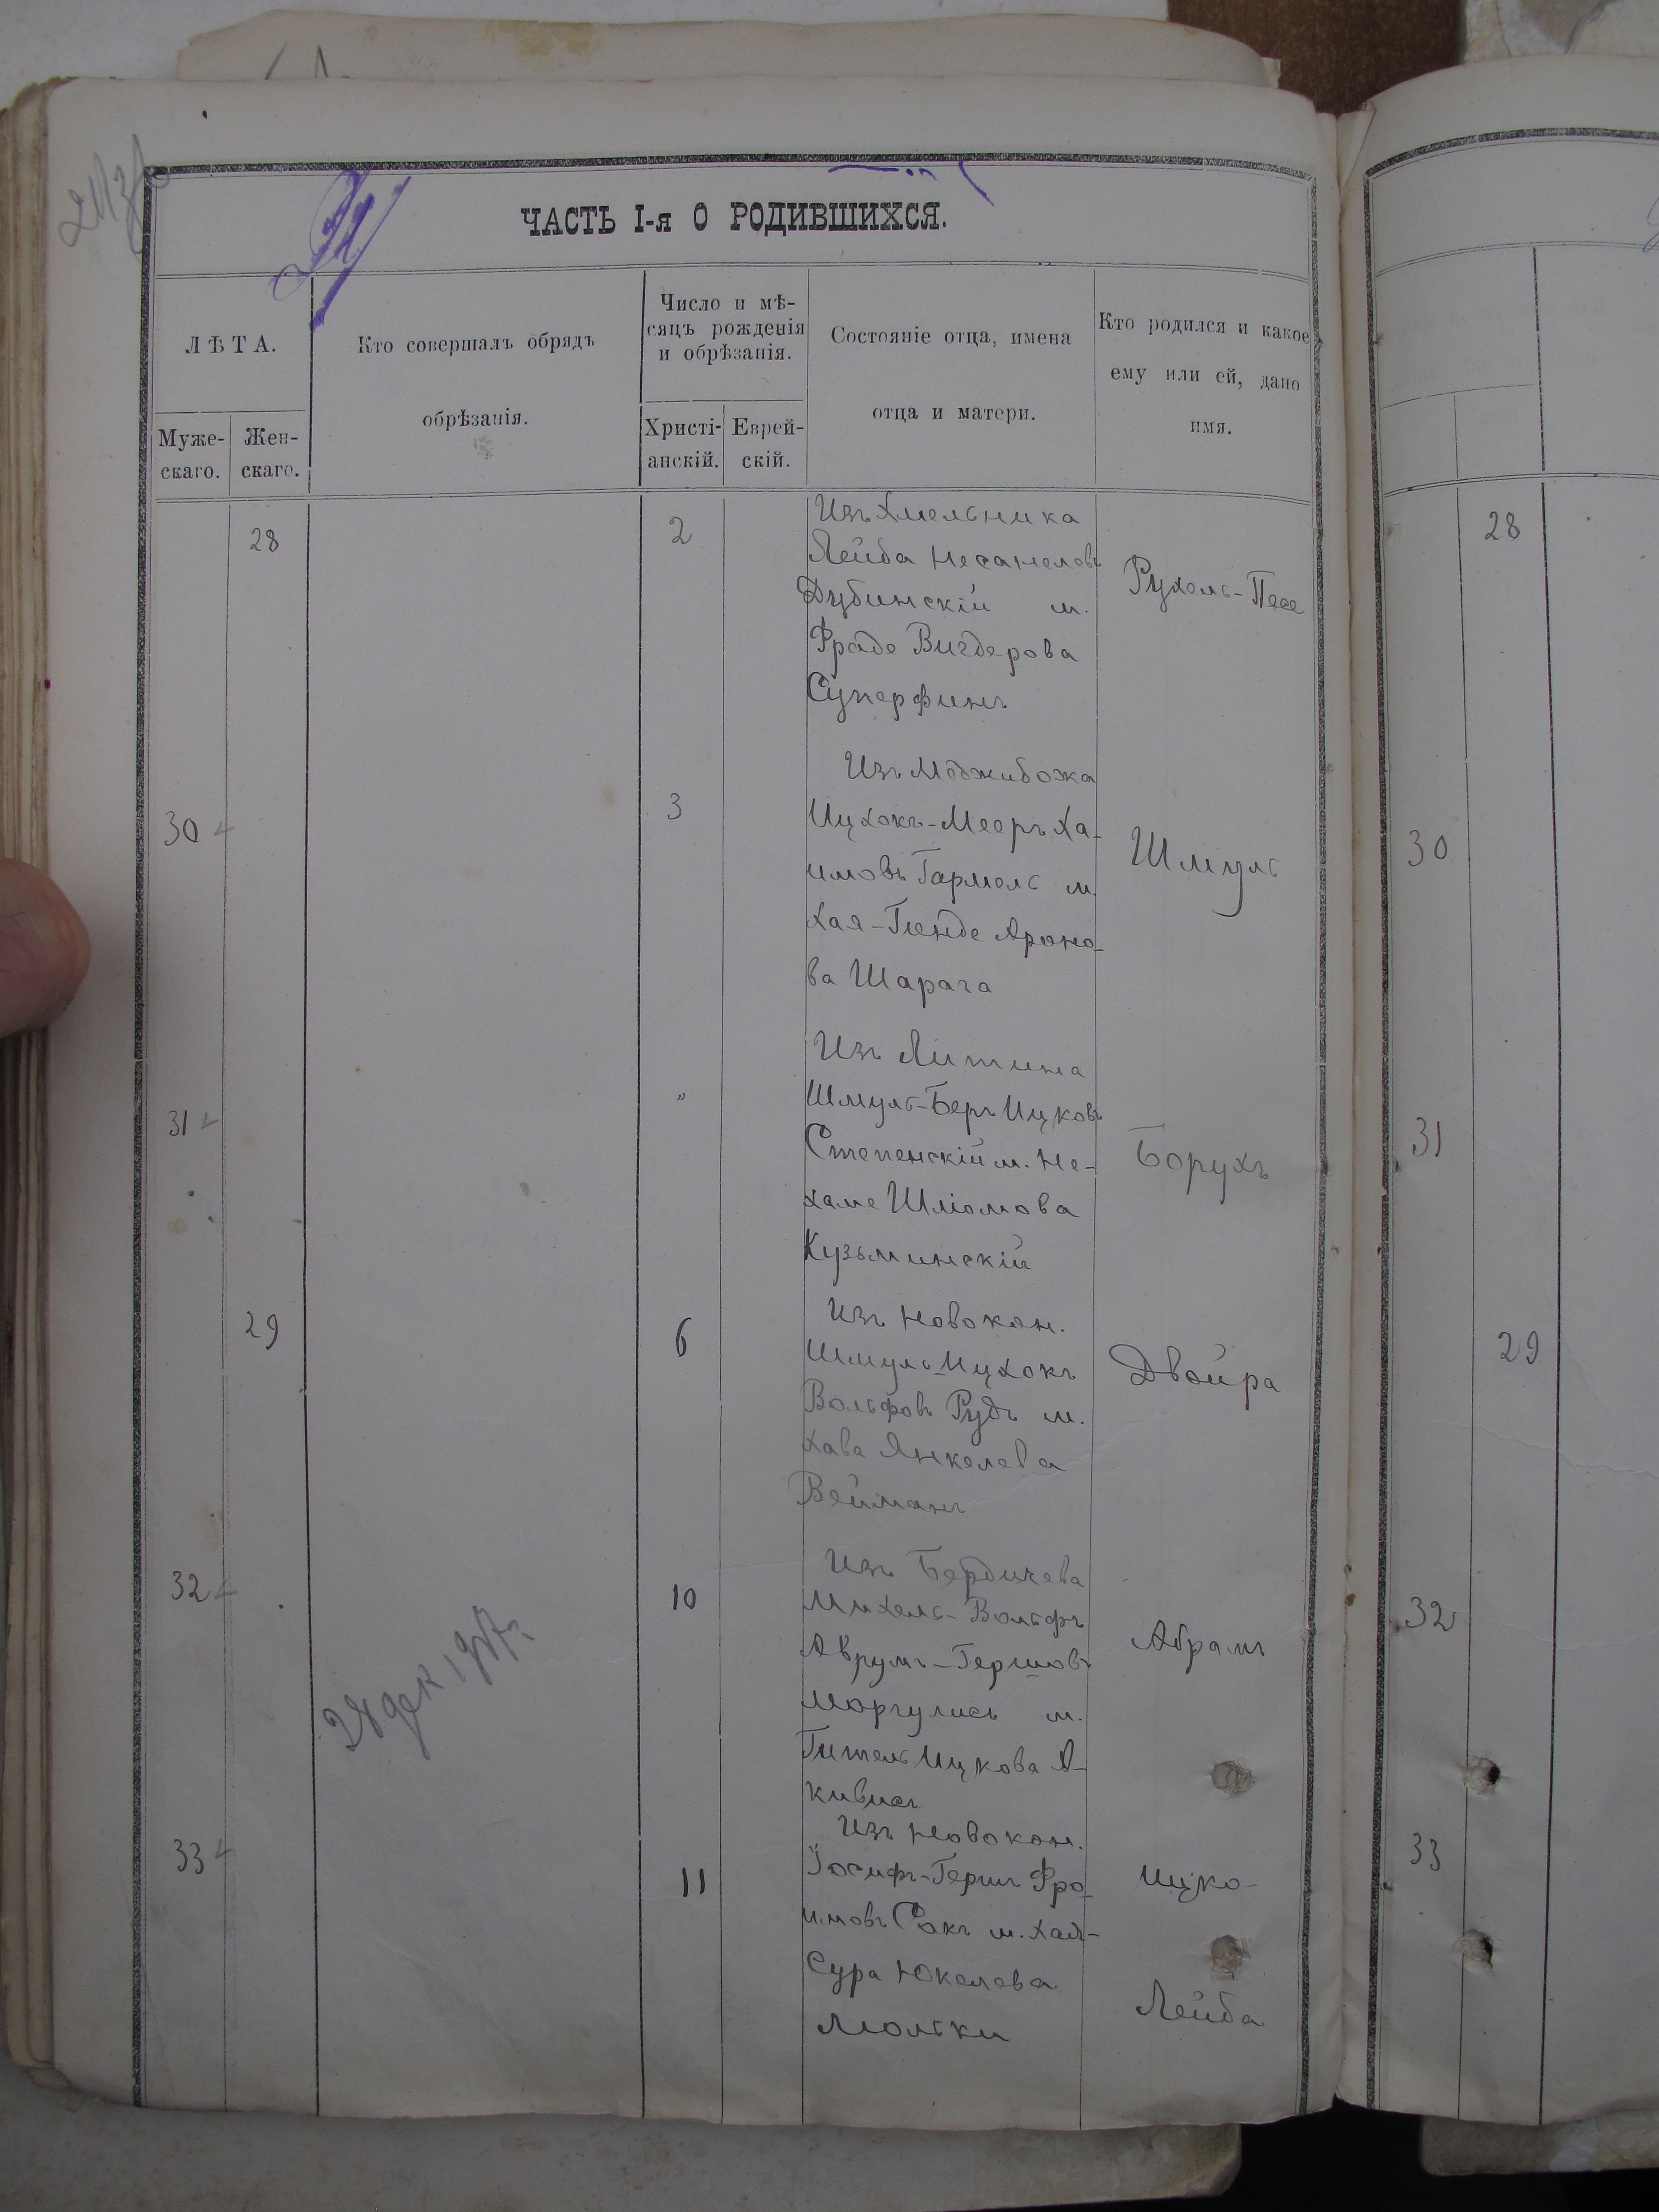 ЧАСТЬ I-я О РОДИВШИХСЯ.
ЛѢТА.
Муже-
скаго.
Жен-
скаго.
Кто совершалъ обрядъ
обрѣзанія.
Число и мѣ-
сяцъ рожденія
и обрѣзанія.
Христі-
анскій.
Еврей-
скій.
Состояніе отца, имена
отца и матери.
Кто родился и какое
ему или ей, дано
имя.
28
2
Изъ Хмельника
Лейба Несанеловъ
Дубинскій м.
Фраде Вигдерова
Суперфинъ
Рухель-Песе
28
30
3
Изъ Меджибожа
Ицхокъ-Мееръ Ха-
имовъ Гармель м.
Хая-Генде Ароно-
ва Шарага
Шмуль
30
31
"
Изъ Литина
Шмуль-Беръ Ицковъ
Степенскій м. Не-
хаме Шліомова
Кузьминскій
Борухъ
31
29
6
Изъ Новокон.
Шмуль-Ицхокъ
Вольфовъ Рудъ м.
Хава Янкелева
Вейманъ
Двойра
29
32
10
28 дек 1907г.
Изъ Бердичева
Михель-Вольфъ
Аврумъ-Гершовъ
Моргулисъ м.
Гитель Ицкова А-
кивисъ
Абрамъ
32
33
11
Изъ Новокон.
Іосифъ-Гершъ Фро-
имовъ Сокъ м. Хая-
Сура Юкелева
Люльки
Ицко-
Лейба
33